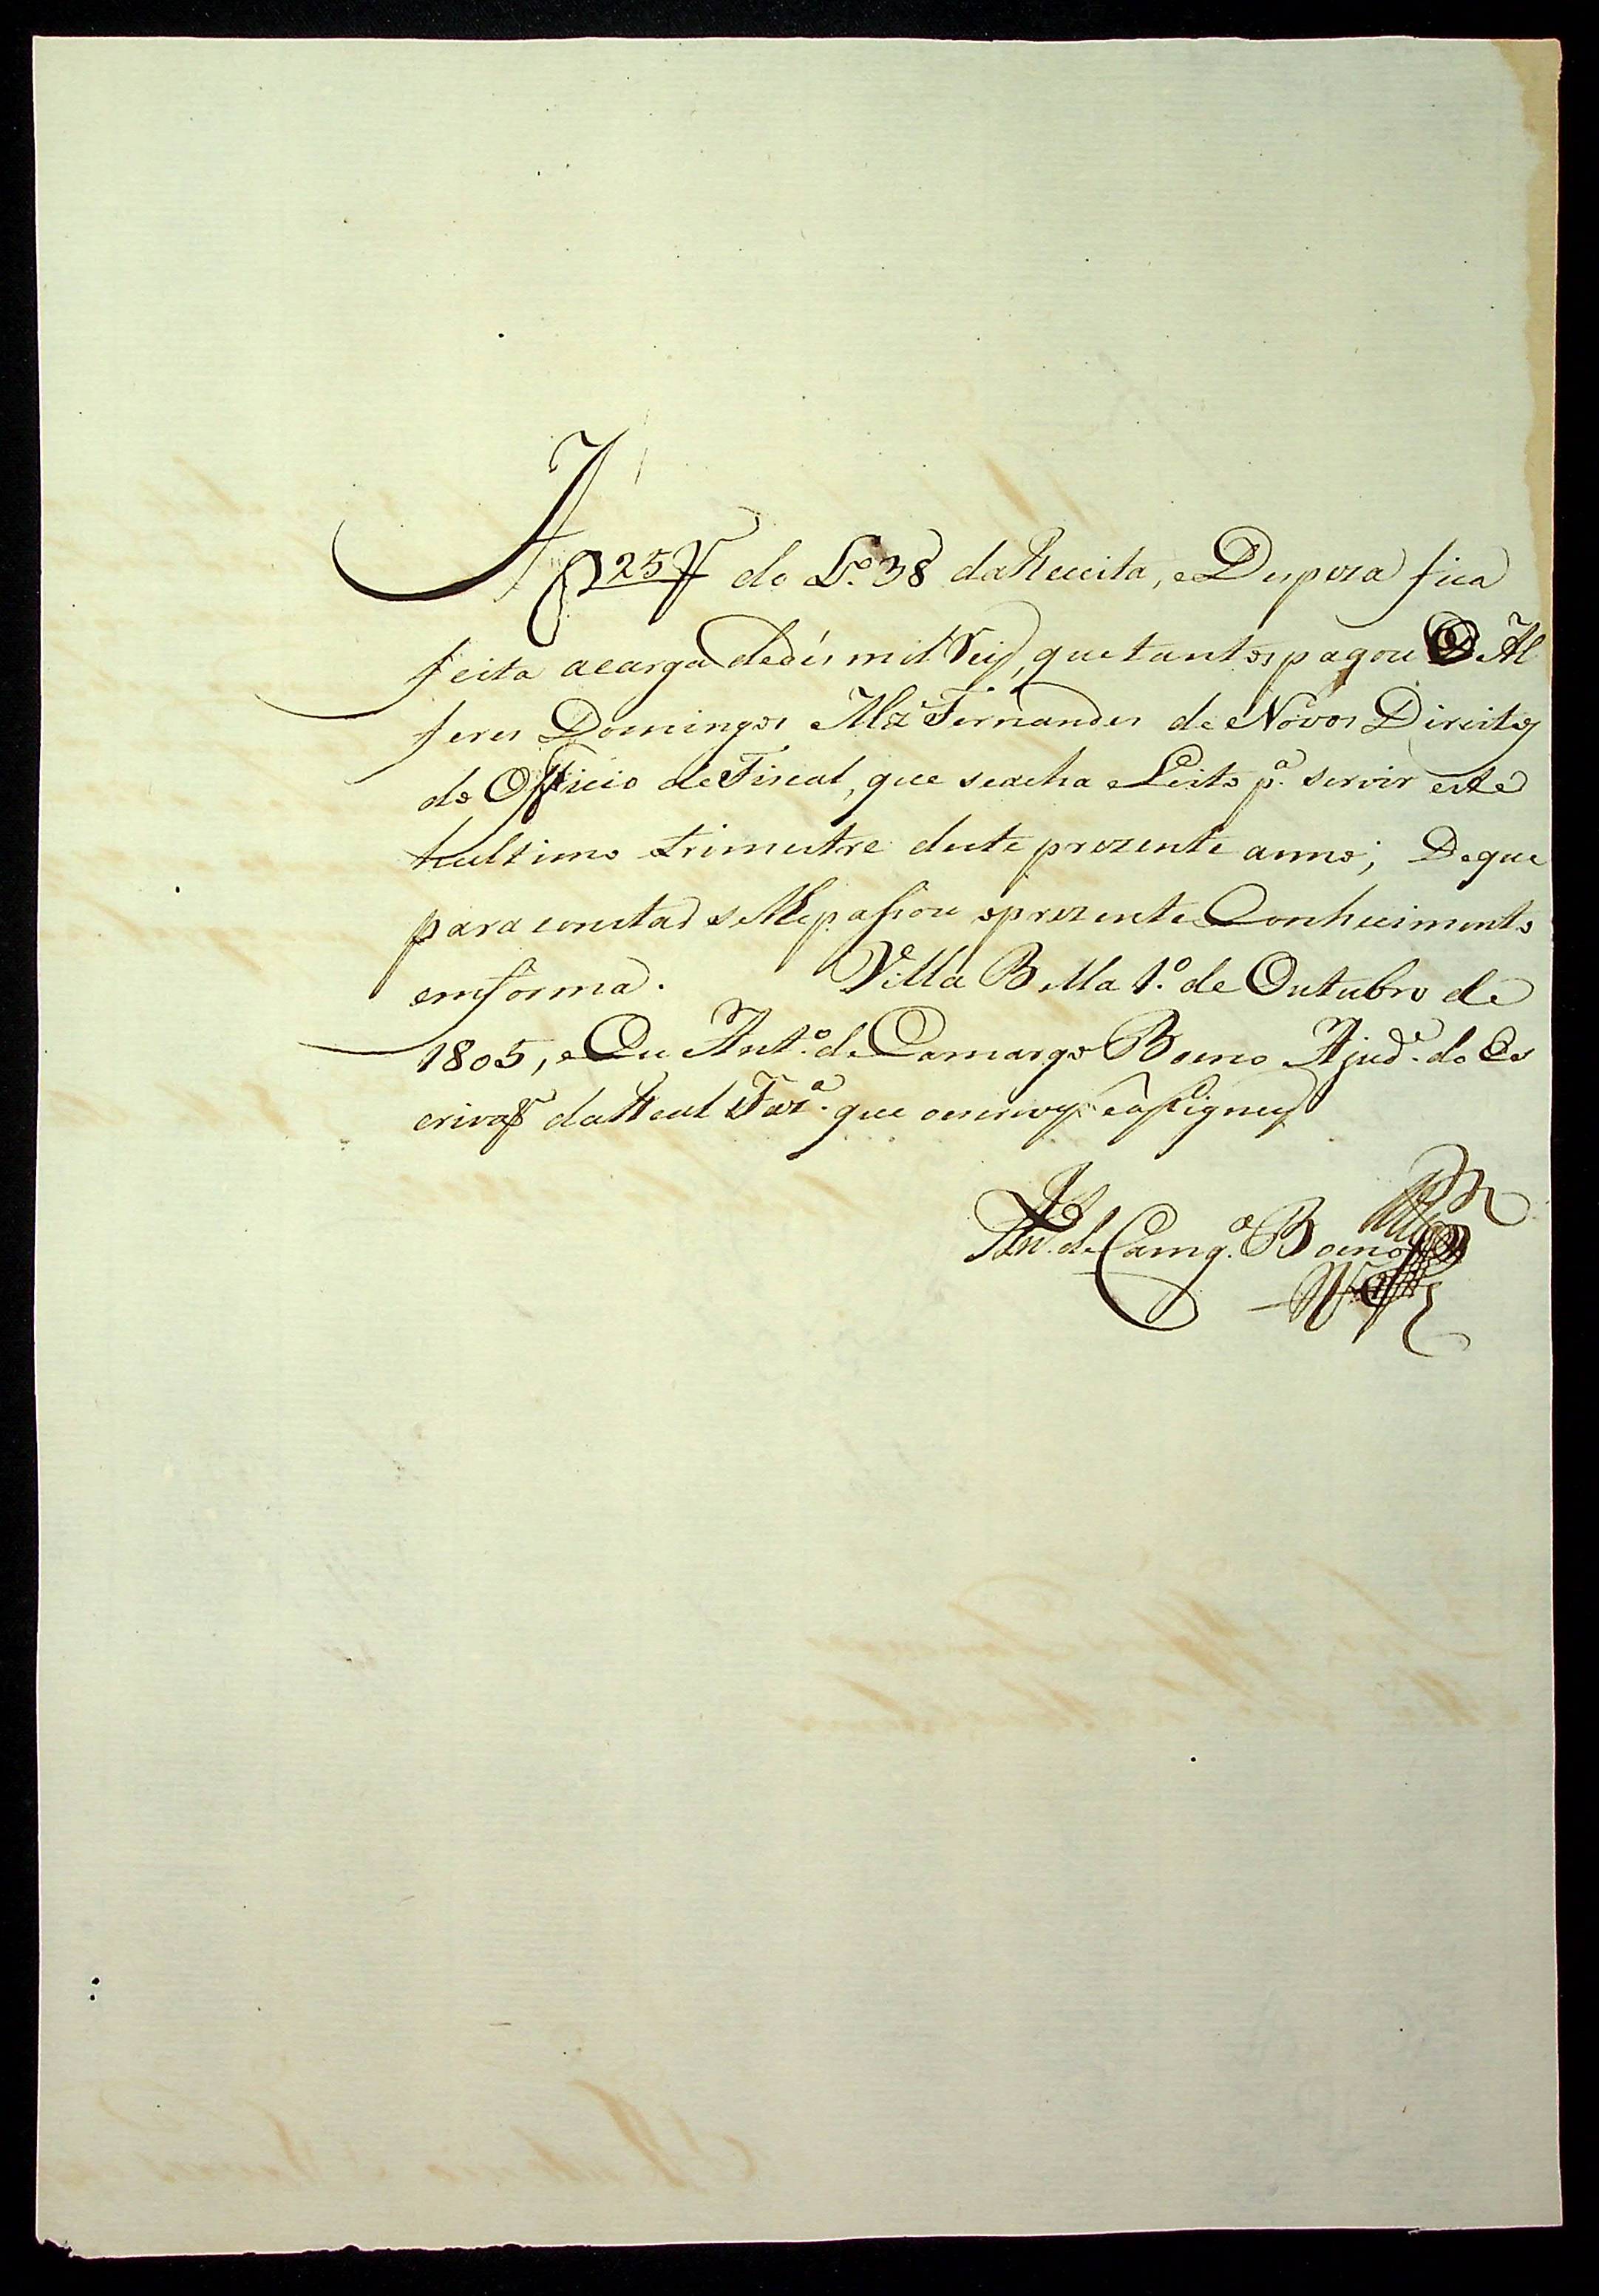 A f 25 V do L.º 38 da Receita, e Despeza fica
feita acarga dedés mil Reis, que tantos pagou O Al
feres Domingos Alz' Fernandes de Novos Direitos
do Officio de Fiscal, que seacha eLeito p.ª servir este
hultimo trimestre deste prezente anno; Deque
para constar selhe passou oprezente Conhecimento
emforma. Villa Bella 1.º de Outubro de
1805, e Eu Ant.º de Camargo Boeno Ajud.e do Es
crivaõ da Real Faz.ª que oescrevy, eassigney
Ant.º de Camg.º Boeno